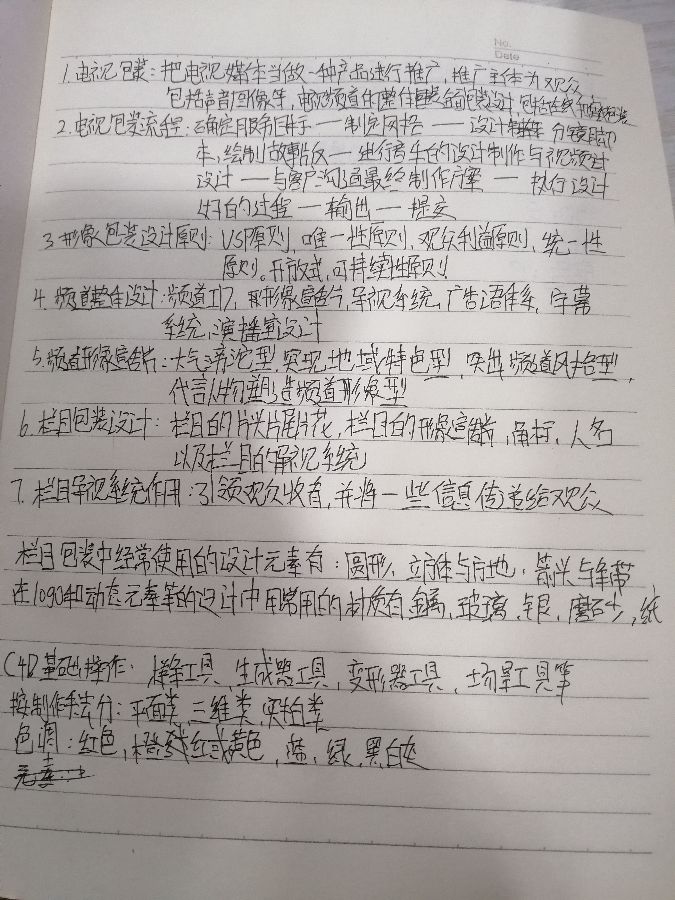 No.
Date
1.电视包装:把电视媒体当做一种产品进行推广,推广主体为观众
包括声音图像等,电视频道的整体包装全面包装设计 包括在线和离线包装
2.电视包装流程:确定服务目标——制定风格——设计 分镜头脚
本,绘制故事版——进行音乐的设计制作与视频设计
设计——与客户沟通最终制作方案——执行设计
好的过程——输出——提交
3.形象包装设计原则:VS原则,唯一性原则,观众利益原则,统一性
原则。开放式,可持续性原则
4.频道整体设计:频道ID,形象宣传片,导视系统,广告语体系,字幕
系统,演播室设计
5.频道形象宣传片:大气滂沱型,实现地域特色型,突出频道风格型,
代言人物塑造频道形象型
6.栏目包装设计:栏目的片头片尾片花,栏目的形象宣传片,角标,人名
以及栏目的导视系统
7.栏目导视系统作用:引领观众收看,并将一些信息传递给观众
栏目包装中经常使用的设计元素有:圆形,立方体与方地,箭头与绵带
在logo和动态元素等的设计中常用的材质有金属,玻璃,银,磨砂,纸
C4D基础操作:样条工具,生成器工具,变形器工具,场景工具等
按制作手法分:平面类,三维类,实拍类
色调:红色,橙红或黄色,蓝,绿,黑白灰